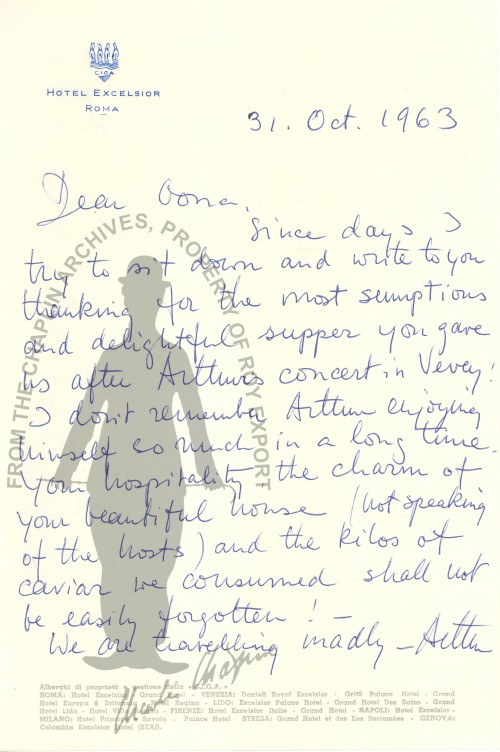 CIGA
HOTEL EXCELSIOR
ROMA
31. Oct. 1963
Dear Oona,
Since days I
try to sit down and write to you
thanking for the most sumptious
and delightful supper you gave
us after Arthur's concert in Vevey!
I don't remember Arthur enjoying
himself so much in a long time.
Your hospitality, the charm of
your beautiful house (not speaking
of the hosts) and the kilos of
caviar we consumed shall not
be easily forgotten! –
We are travelling madly – Arthur
FROM THE CHAPLIN ARCHIVES, PROPERTY OF ROY EXPORT
Charles Chaplin
Alberghi di proprietà e gestione della « C.I.G.A. »
ROMA: Hotel Excelsior - Grand Hotel - VENEZIA: Danieli Royal Excelsior - Gritti Palace Hotel - Grand
Hotel Europa & Britannia - Hotel Regina - LIDO: Excelsior Palace Hotel - Grand Hotel Des Bains - Grand
Hotel Lido - Hotel Villa - FIRENZE: Hotel Excelsior Italie - Grand Hotel - NAPOLI: Hotel Excelsior -
MILANO: Hotel Principe & Savoia - Palace Hotel - STRESA: Grand Hotel et des Iles Borromées - GENOVA:
Colombia Excelsior Hotel (STAI).